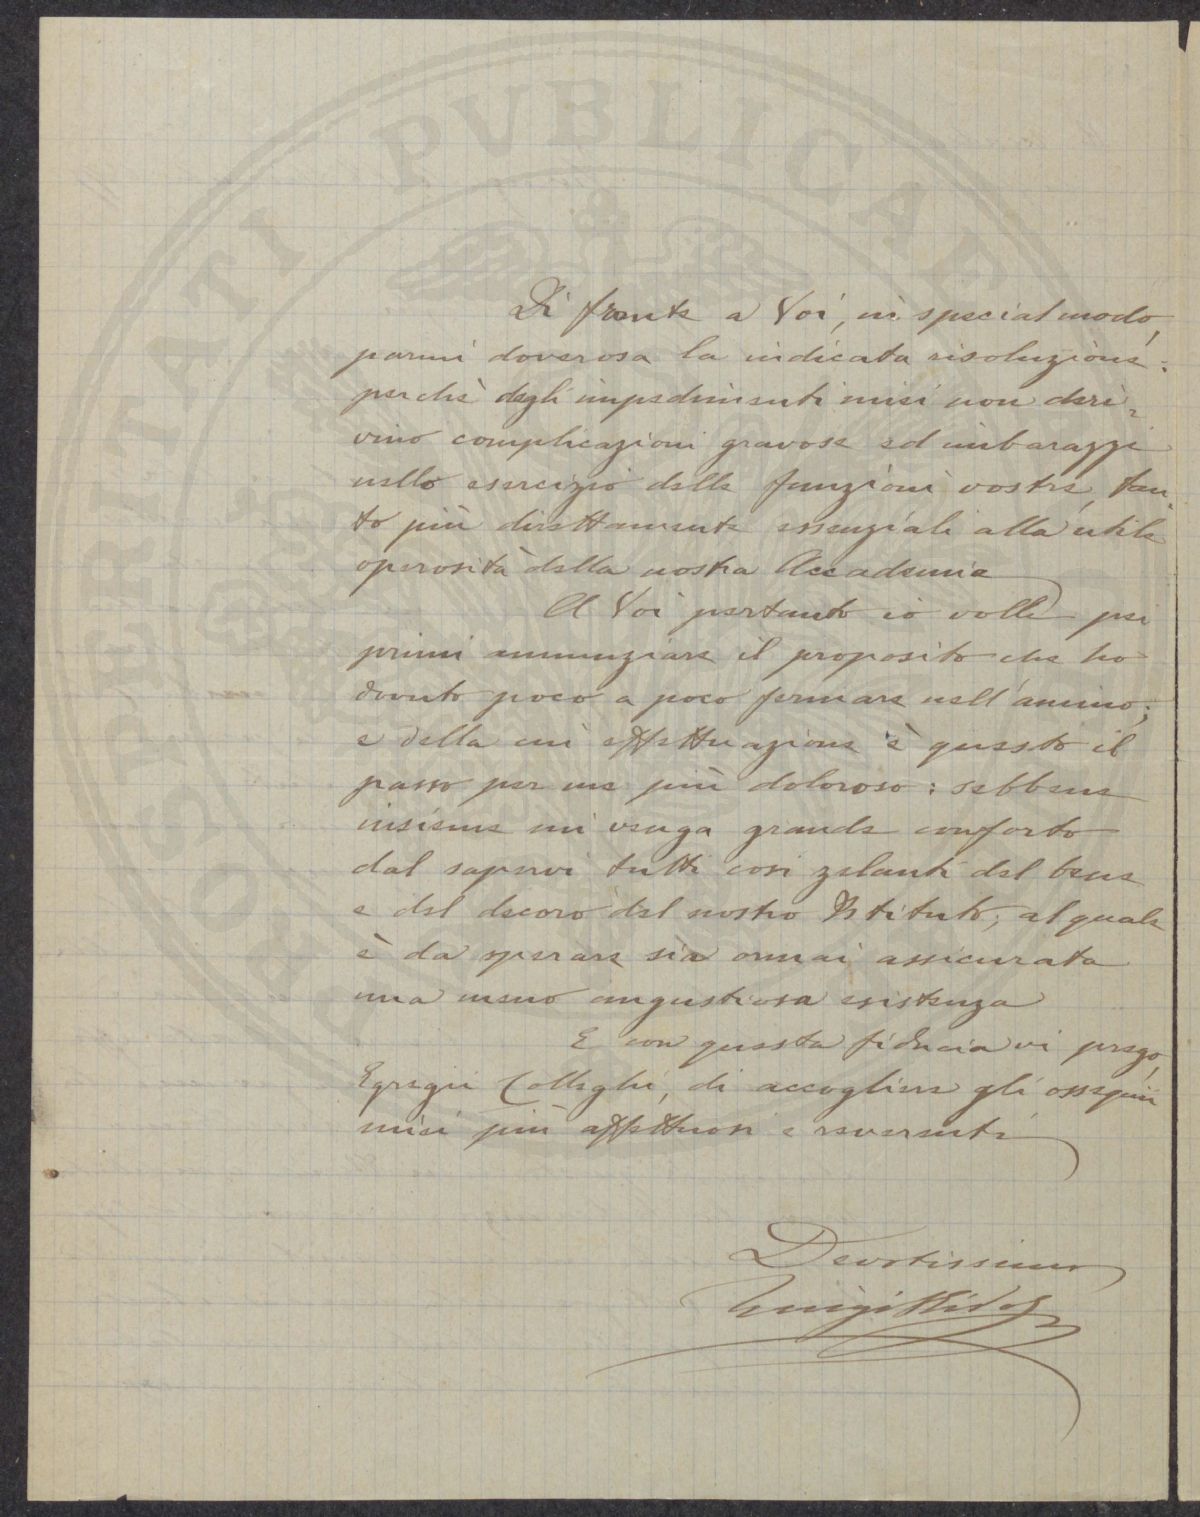 PVBLICAE
Di fronte a Voi, in special modo,
parmi doverosa la indicata risoluzione:
perchè degli impedimenti miei non deri-
vino complicazioni gravose ed imbarazzi
nello esercizio delle funzioni vostre, tan-
to più direttamente essenziali alla utile
operosità della nostra Accademia
A Voi pertanto io volli pei
primi annunziare il proposito che ho
dovuto poco a poco fermare nell'animo;
e della cui effettuazione è questo il
passo per me più doloroso: sebbene
insieme mi venga grande conforto
dal sapervi tutti così zelanti del bene
e del decoro del nostro Istituto; al quale
è da sperare sia ormai assicurata
una meno angustiosa esistenza
E con questa fiducia vi prego,
Egregii Colleghi, di accogliere gli ossequii
miei più affettuosi e reverenti
Devotissimo
Luigi